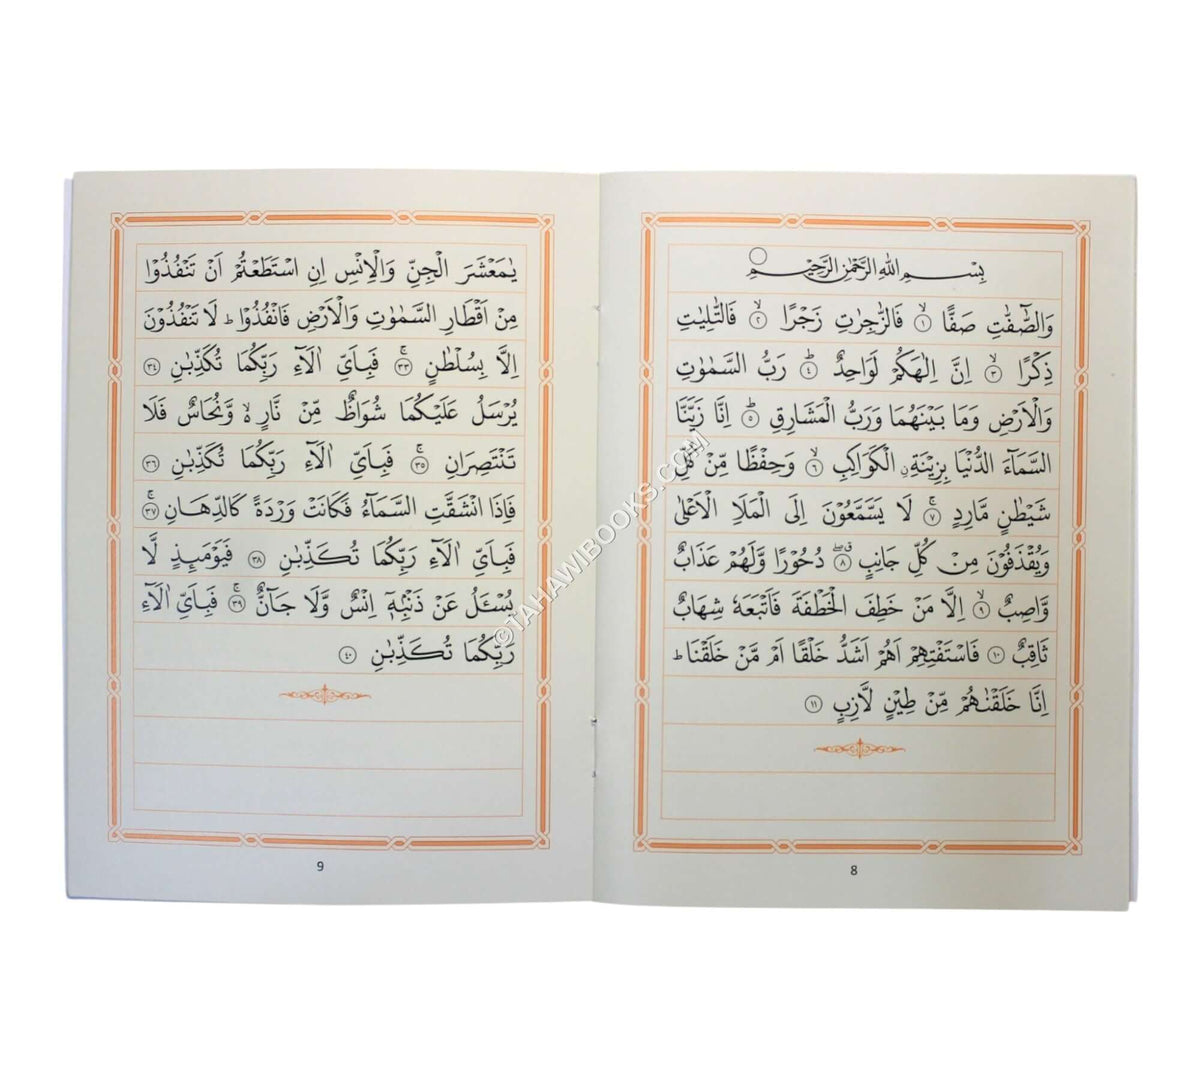 بِسْمِ اللهِ الرَّحْمٰنِ الرَّحِيْمِ
وَالصّٰٓفّٰتِ صَفًّا ۙ﴿١﴾ فَالزّٰجِرٰتِ زَجْرًا ۙ﴿٢﴾ فَالتّٰلِيٰتِ
ذِكْرًا ۙ﴿٣﴾ اِنَّ اِلٰهَكُمْ لَوَاحِدٌ ؕ﴿٤﴾ رَبُّ السَّمٰوٰتِ
وَالْاَرْضِ وَمَا بَيْنَهُمَا وَرَبُّ الْمَشَارِقِ ؕ﴿٥﴾ اِنَّا زَيَّنَّا
السَّمَآءَ الدُّنْيَا بِزِيْنَةِ ۨالْكَوَاكِبِ ۙ﴿٦﴾ وَحِفْظًا مِّنْ كُلِّ
شَيْطٰنٍ مَّارِدٍ ۚ﴿٧﴾ لَا يَسَّمَّعُوْنَ اِلَى الْمَلَاِ الْاَعْلٰى
وَيُقْذَفُوْنَ مِنْ كُلِّ جَانِبٍ ۖق﴿٨﴾ دُحُوْرًا وَّلَهُمْ عَذَابٌ
وَّاصِبٌ ۙ﴿٩﴾ اِلَّا مَنْ خَطِفَ الْخَطْفَةَ فَاَتْبَعَهٗ شِهَابٌ
ثَاقِبٌ ﴿١٠﴾ فَاسْتَفْتِهِمْ اَهُمْ اَشَدُّ خَلْقًا اَمْ مَّنْ خَلَقْنَا ؕ
اِنَّا خَلَقْنٰهُمْ مِّنْ طِيْنٍ لَّازِبٍ ﴿١١﴾
8
يٰمَعْشَرَ الْجِنِّ وَالْاِنْسِ اِنِ اسْتَطَعْتُمْ اَنْ تَنْفُذُوْا
مِنْ اَقْطَارِ السَّمٰوٰتِ وَالْاَرْضِ فَانْفُذُوْا ؕ لَا تَنْفُذُوْنَ
اِلَّا بِسُلْطٰنٍ ۚ﴿٣٣﴾ فَبِاَيِّ اٰلَآءِ رَبِّكُمَا تُكَذِّبٰنِ ﴿٣٤﴾
يُرْسَلُ عَلَيْكُمَا شُوَاظٌ مِّنْ نَّارٍ ۙ وَّنُحَاسٌ فَلَا
تَنْتَصِرَانِ ۚ﴿٣٥﴾ فَبِاَيِّ اٰلَآءِ رَبِّكُمَا تُكَذِّبٰنِ ﴿٣٦﴾
فَاِذَا انْشَقَّتِ السَّمَآءُ فَكَانَتْ وَرْدَةً كَالدِّهَانِ ۚ﴿٣٧﴾
فَبِاَيِّ اٰلَآءِ رَبِّكُمَا تُكَذِّبٰنِ ﴿٣٨﴾ فَيَوْمَئِذٍ لَّا
يُسْـَٔلُ عَنْ ذَنْۢبِهٖٓ اِنْسٌ وَّلَا جَآنٌّ ۚ﴿٣٩﴾ فَبِاَيِّ اٰلَآءِ
رَبِّكُمَا تُكَذِّبٰنِ ﴿٤٠﴾
9
©TAHAWIBOOKS.COM